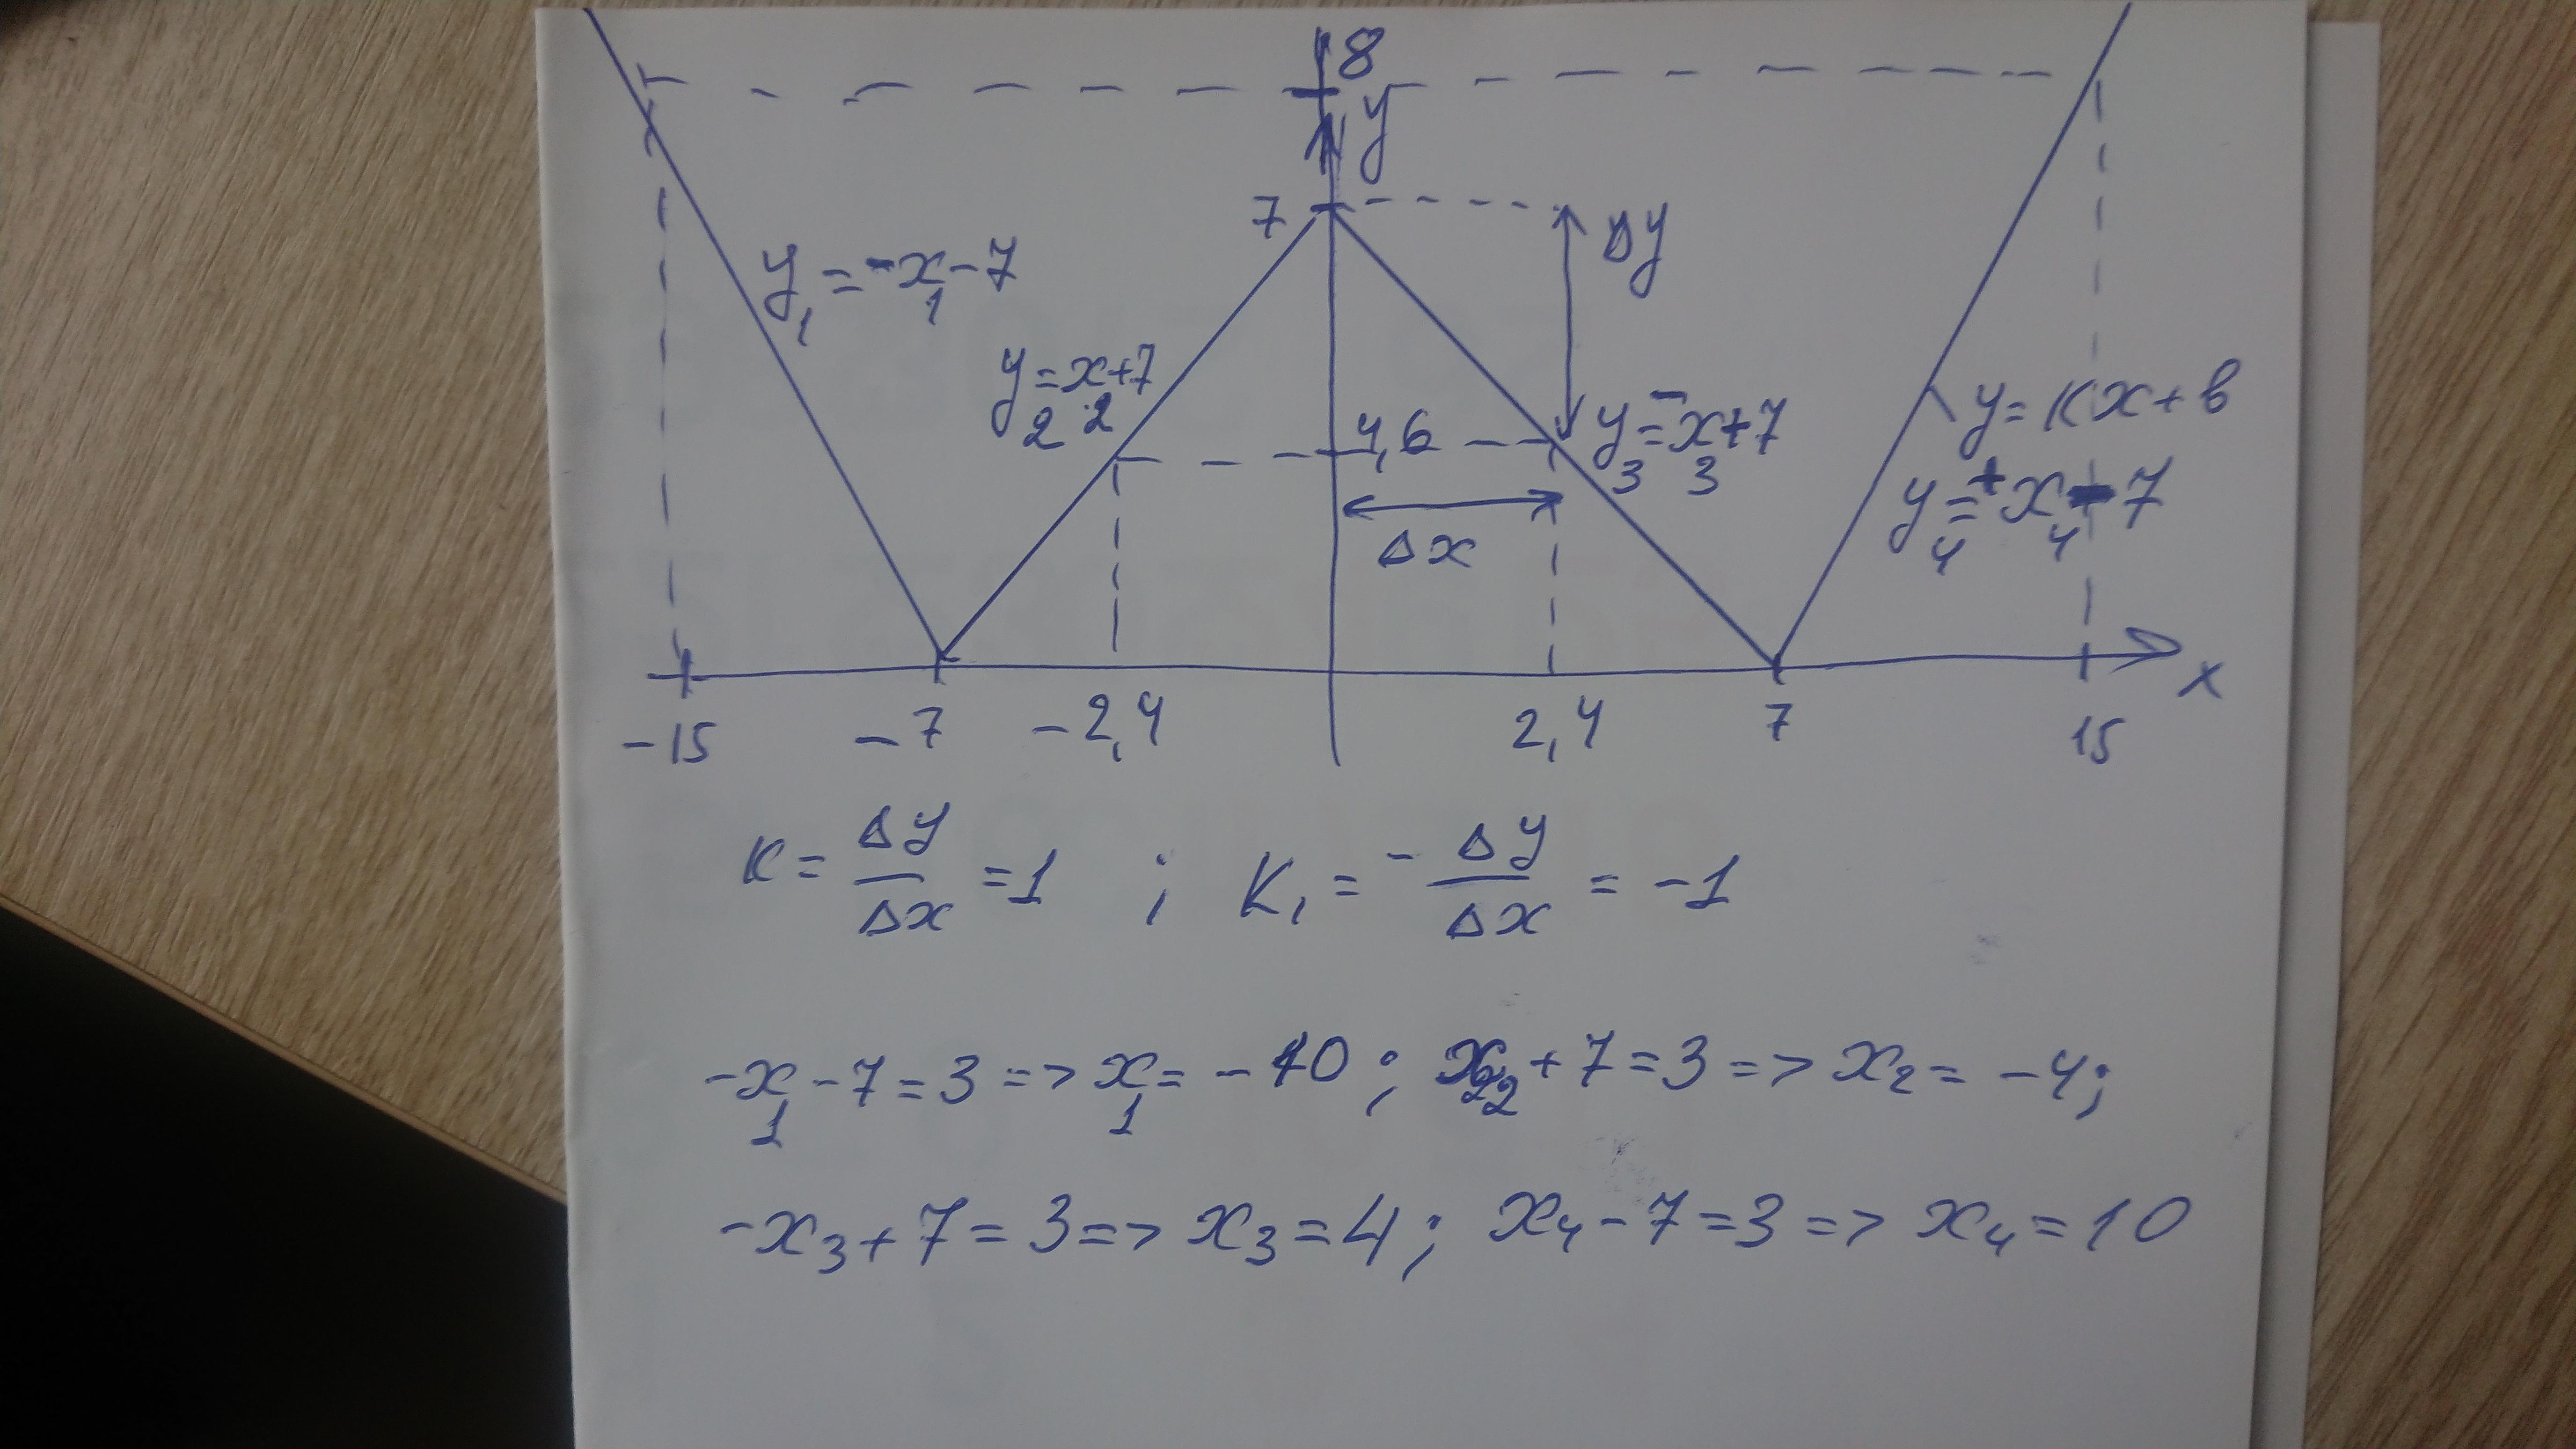 8
y
7
Δy
y₁ = -x₁ - 7
y₂ = x₂ + 7
4,6
y₃ = -x₃ + 7
y = kx + b
y₄ = +x₄ - 7
Δx
x
-15 -7 -2,4 2,4 7 15
K = Δy/Δx = 1 ; K₁ = - Δy/Δx = -1
-x₁ - 7 = 3 => x₁ = -10 ; x₂ + 7 = 3 => x₂ = -4;
-x₃ + 7 = 3 => x₃ = 4 ; x₄ - 7 = 3 => x₄ = 10